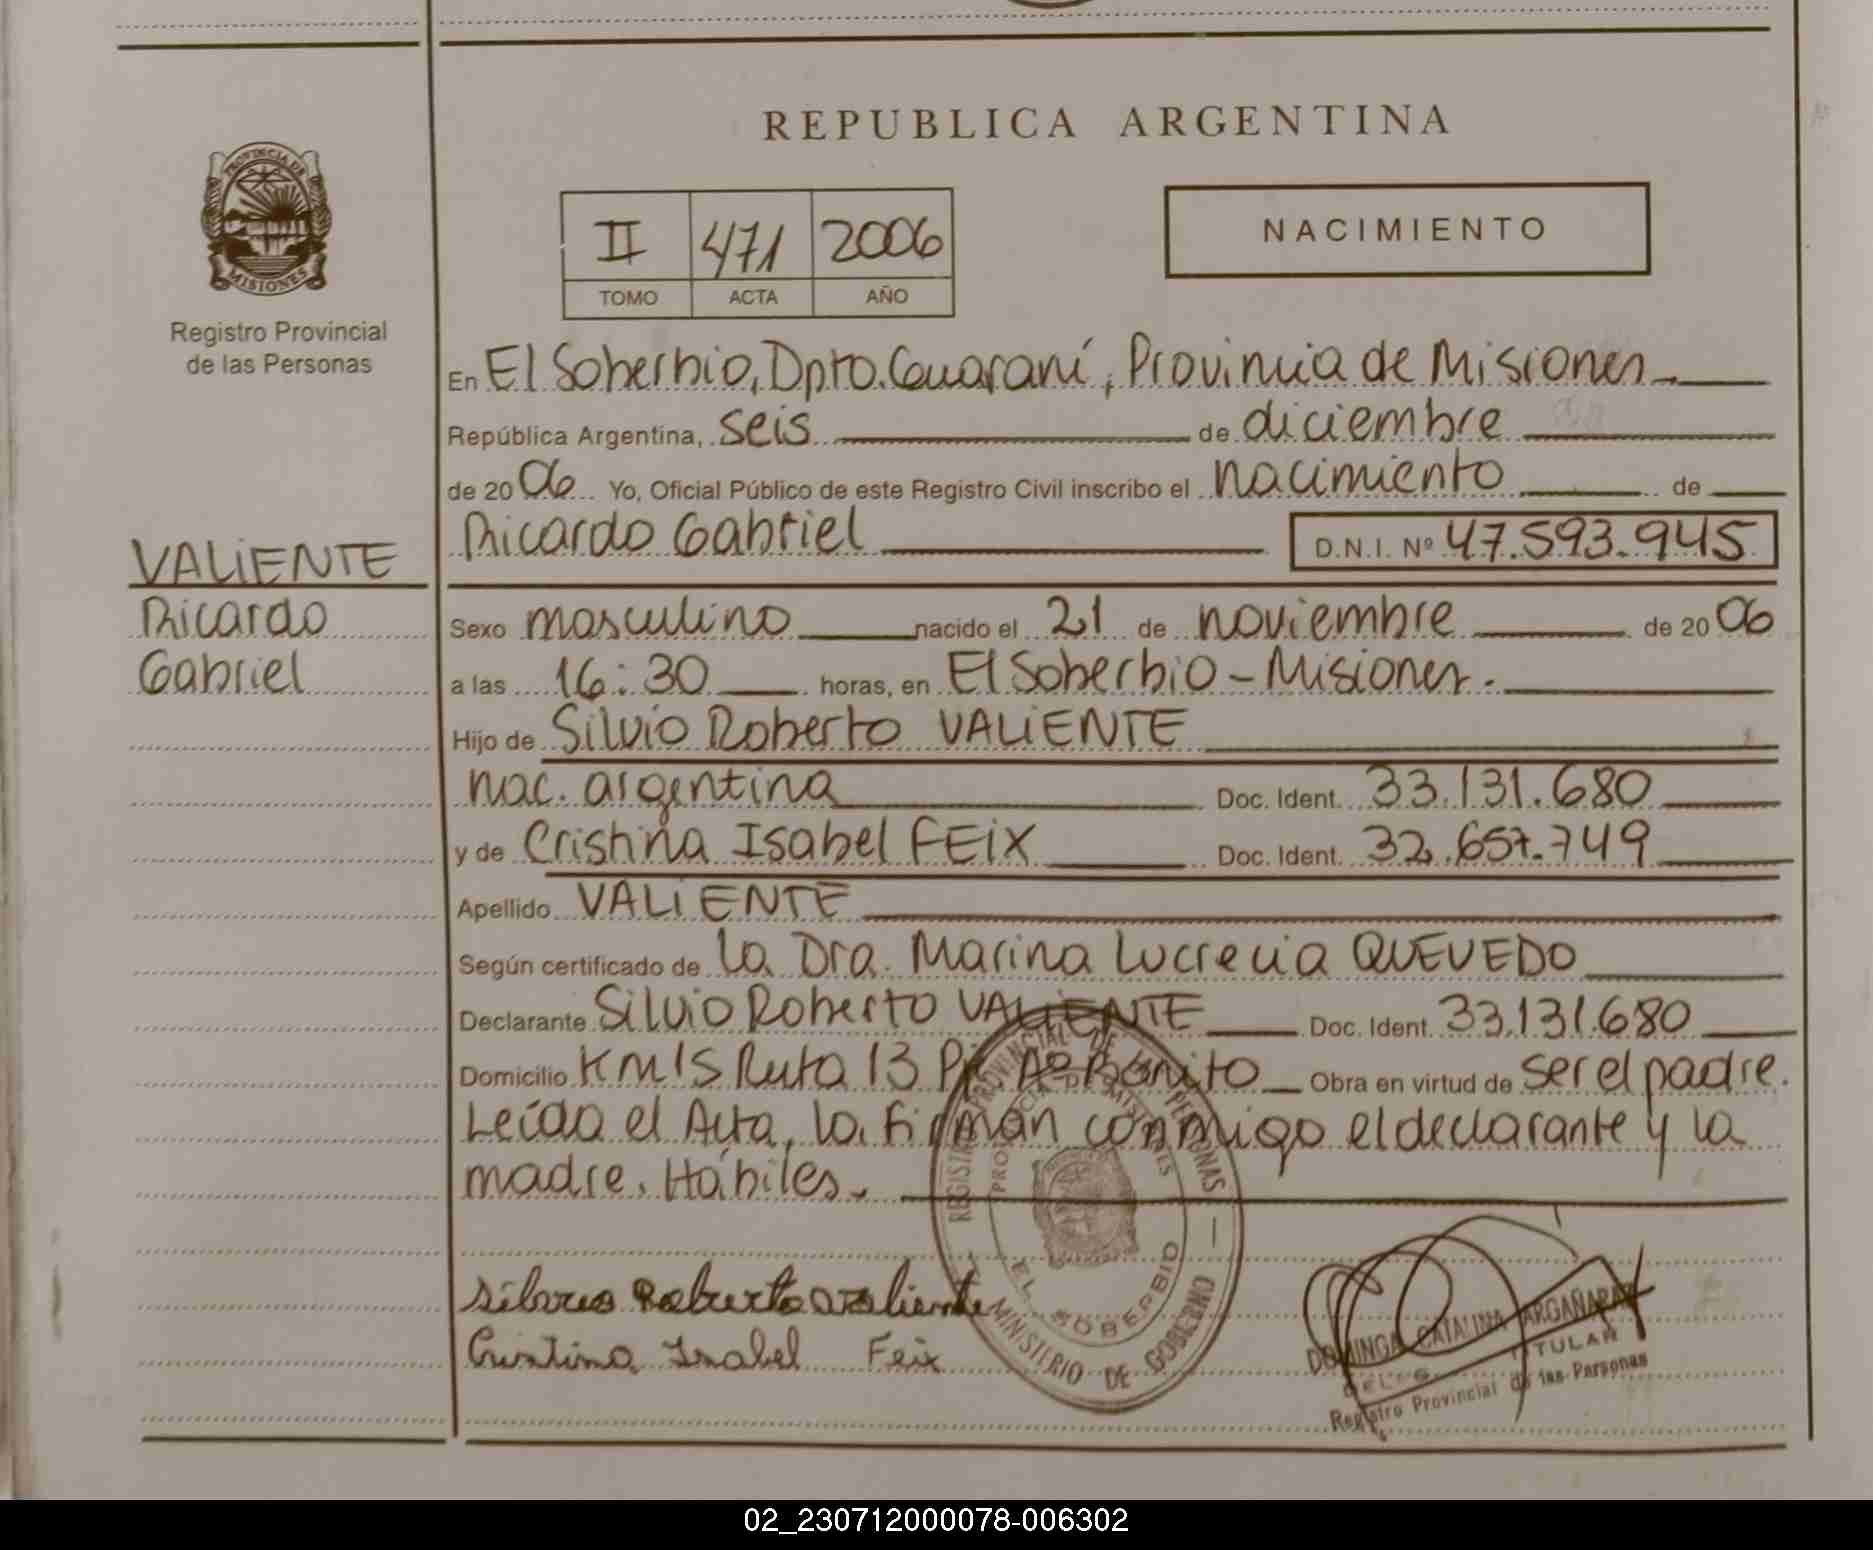 REPUBLICA ARGENTINA
PROVINCIA DE
MISIONES
Registro Provincial
de las Personas
II 471 2006
TOMO ACTA AÑO
NACIMIENTO
En El Soberbio, Dpto. Guaraní, Provincia de Misiones.
República Argentina, seis de diciembre
de 2006 Yo, Oficial Público de este Registro Civil inscribo el nacimiento de
Ricardo Gabriel D.N.I. Nº 47.593.945
VALiENTE
Ricardo
Gabriel
Sexo masculino nacido el 21 de noviembre de 2006
a las 16:30 horas, en El Soberbio - Misiones.
Hijo de Silvio Roberto VALiENTE
nac. argentina Doc. Ident. 33.131.680
y de Cristina Isabel FEiX Doc. Ident. 32.657.749
Apellido VALiENTE
Según certificado de la Dra. Marina Lucrecia QUEVEDO
Declarante Silvio Roberto VALiENTE Doc. Ident. 33.131.680
Domicilio Km 15 Ruta 13 Pje Aº Bonito Obra en virtud de ser el padre.
Leída el Acta, la firman conmigo el declarante y la
madre. Hábiles.
REGISTRO PROVINCIAL DE LAS PERSONAS
PROVINCIA DE MISIONES
EL SOBERBIO
MINISTERIO DE GOBIERNO
Roberto Valiente
Cristina Isabel Feix
DOMINGA CATALINA ARGAÑARAZ
TITULAR
Registro Provincial de las Personas
02_230712000078-006302